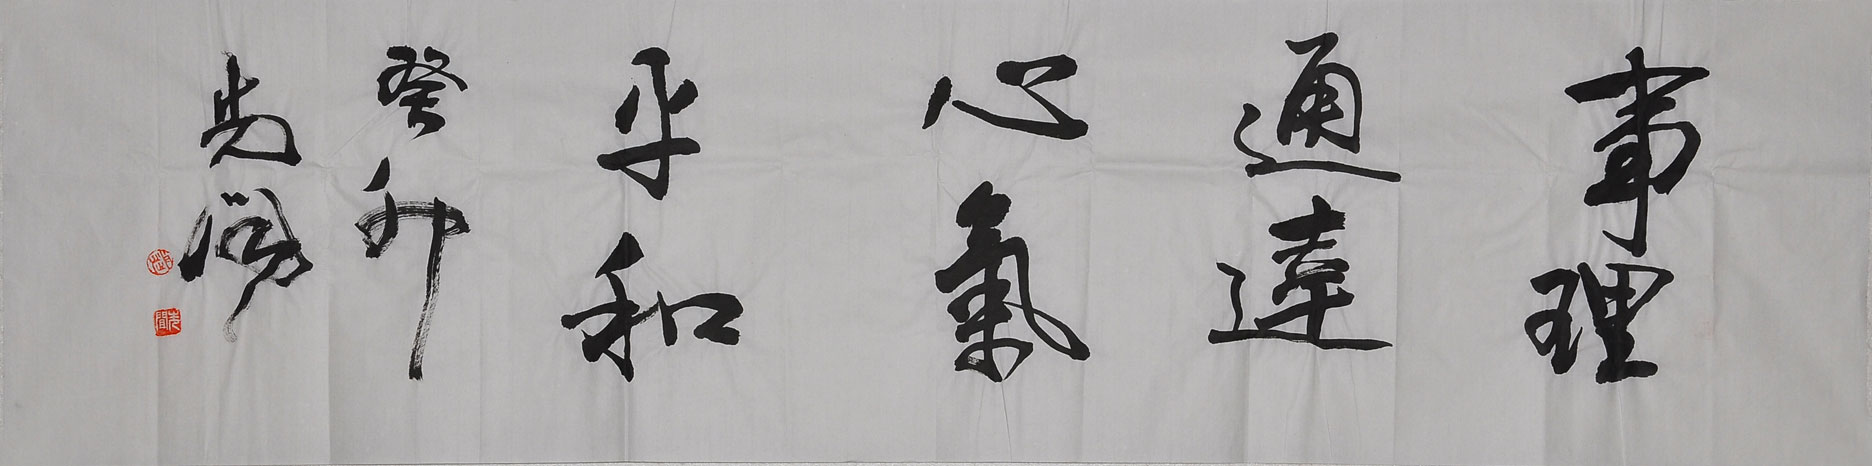 事理
通達
心氣
平和
癸卯
先聞